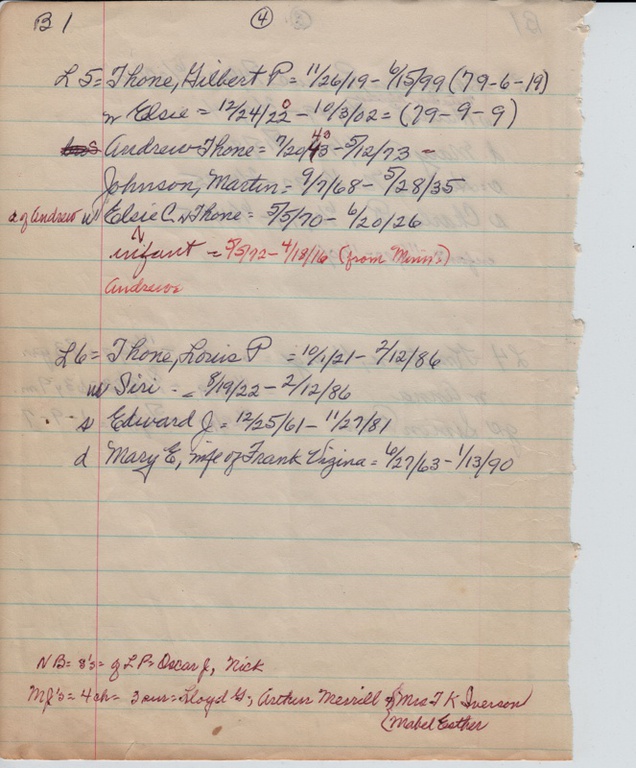 B 1 ④
L 5 = Thone, Gilbert P = 11/26/19 - 6/15/99 (79-6-19)
w Elsie = 12/24/22 - 10/3/02 = (79-9-9)
s Andrew Thone = 7/20/43 - 5/12/73 -
Johnson, Martin = 9/7/68 - 5/28/35
d of Andrew w Elsie C. Thone = 5/5/70 - 6/20/26
infant = 5/5/72 - 4/18/16 (from Minn.)
Andrews
L6 = Thone, Louis P = 10/1/21 - 2/12/86
w Siri - = 8/19/22 - 2/12/86
s Edward J = 12/25/61 - 11/27/81
d Mary E, wife of Frank Vizina = 6/27/63 - 1/13/90
NB = s's = of L P = Oscar J, Nick
MJ's = 4 ch = 3 sur = Lloyd G, Arthur Merrill { Mrs T K Iverson
{ Mabel Esther